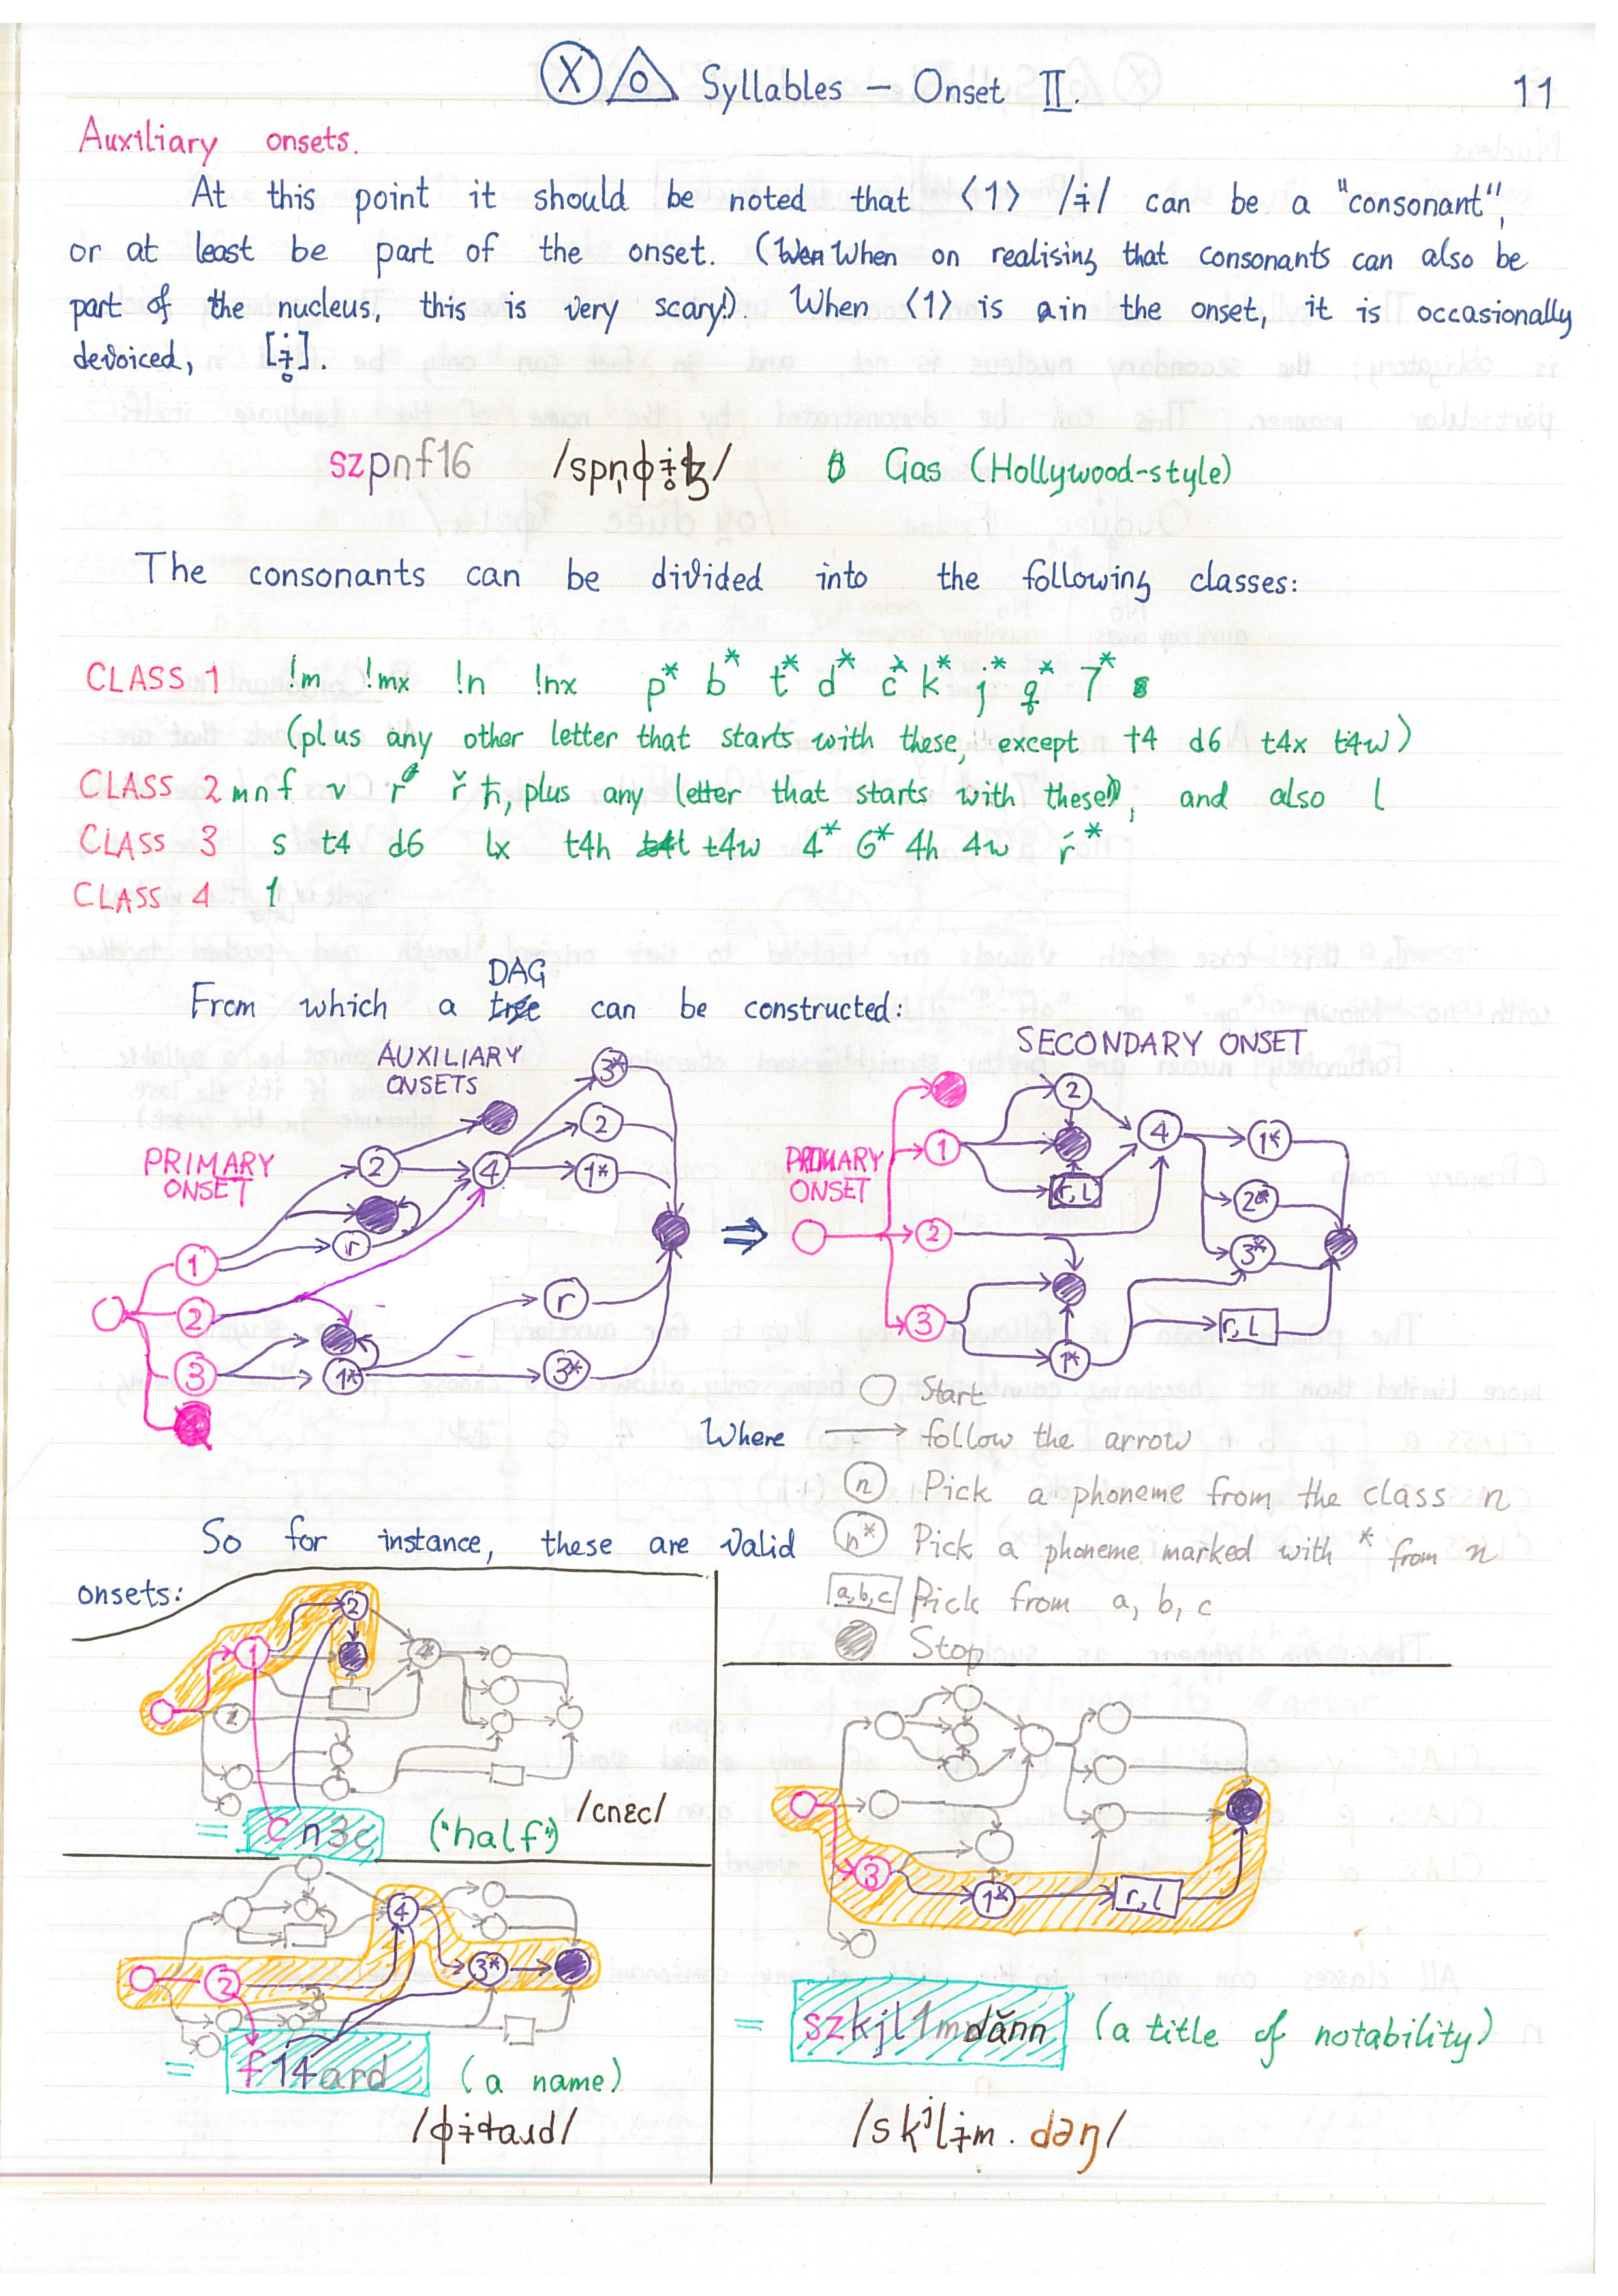 X o Syllables – Onset II. 11
Auxiliary onsets.
At this point it should be noted that ⟨1⟩ /ɨ/ can be a "consonant",
or at least be part of the onset. (When on realising that consonants can also be
part of the nucleus, this is very scary!). When ⟨1⟩ is in the onset, it is occasionally
devoiced, [ɨ̥].
szpnf16 Gas (Hollywood-style)
The consonants can be divided into the following classes:
CLASS 1 !m !mx !n !nx p* b* t* d* c* k* j* q* 7*
(plus any other letter that starts with these, except t4 d6 t4x t4w)
CLASS 2 m n f v r ř ħ, plus any letter that starts with these, and also l
CLASS 3 s t4 d6 lx t4h t4w 4* 6* 4h 4w ŕ*
CLASS 4 1
DAG
From which a tree can be constructed:
AUXILIARY
ONSETS
SECONDARY ONSET
PRIMARY
ONSET
1 2 3 2 r 4 3* 2 1* 1* r 3*
⇒
PRIMARY
ONSET
1 2 3 2 r, l 4 1* 2* 3* 1* r, l
Start
Where → follow the arrow
n Pick a phoneme from the class n
n* Pick a phoneme marked with * from n
a,b,c Pick from a, b, c
Stop
So for instance, these are valid
onsets:
1 2 4 2
= cn3c ("half") /cnɛc/
4 2 3*
= f14ard (a name)
/ɸɨɬaɹd/
3 1* r, l
= szkjl1mdănn (a title of notability)
/skʲlɨm.dəŋ/